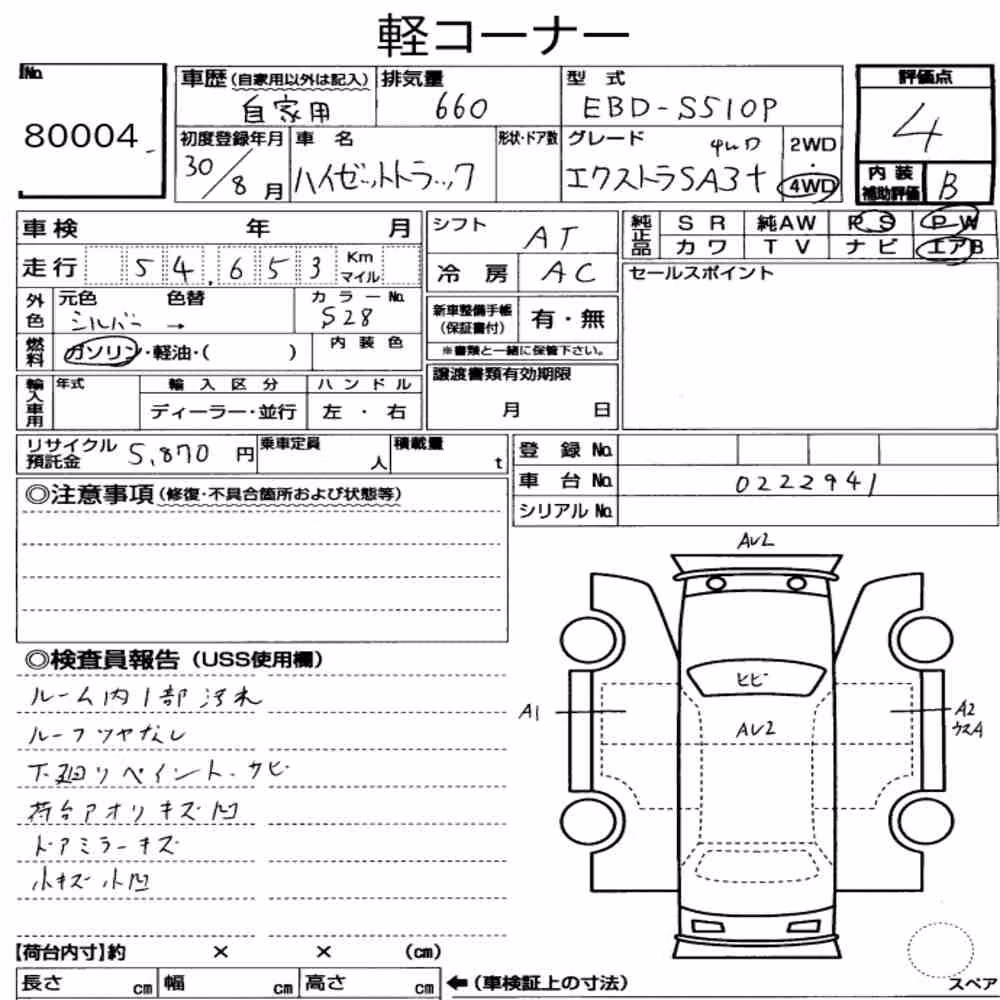 軽コーナー
No.
80004
車歴 (自家用以外は記入) 自家用
排気量 660
型式 EBD-S510P
評価点 4
内装補助評価 B
初度登録年月 30/8月
車名 ハイゼットトラック
形状・ドア数
グレード エクストラSA3t
2WD・4WD
車検 年 月
走行 54,653 Km マイル
シフト AT
冷房 AC
純正品 SR 純AW P.S P.W
カワ TV ナビ エアB
セールスポイント
外色 元色 シルバー → 色替
カラーNo. S28
燃料 ガソリン・軽油・( )
内装色
新車整備手帳(保証書付) 有・無
※書類と一緒に保管下さい。
輸入車用 年式 輸入区分 ハンドル
ディーラー・並行 左・右
譲渡書類有効期限
月 日
リサイクル預託金 5,870円
乗車定員 人
積載量 t
登録No.
車台No. 0222941
シリアルNo.
◎注意事項(修復・不具合箇所および状態等)
◎検査員報告(USS使用欄)
ルーム内1部汚れ
ルーフツヤなし
下廻りペイント、サビ
荷台アオリキズ凹
ドアミラーキズ
小キズ小凹
AU2
ヒビ
A1
AU2
A2
ウスA
【荷台内寸】約 × × (cm)
長さ cm 幅 cm 高さ cm
←(車検証上の寸法)
スペア